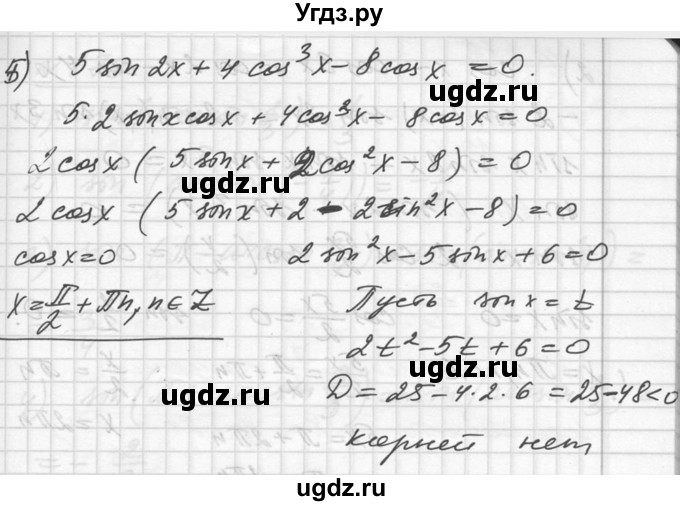 Угдз.ру
б) 5 sin 2x + 4 cos³x - 8 cos x = 0.
ugdz.ru
5·2 sin x cos x + 4 cos³x - 8 cos x = 0
ugdz.ru
2 cos x ( 5 sin x + 2 cos²x - 8) = 0
ugdz.ru
2 cos x ( 5 sin x + 2 - 2 sin²x - 8) = 0
cos x = 0 2 sin²x - 5 sin x + 6 = 0
ugdz.ru
x = π/2 + πn, n ∈ Z Пусть sin x = t
ugdz.ru
2t² - 5t + 6 = 0
ugdz.ru
D = 25 - 4·2·6 = 25 - 48 < 0
ugdz.ru
корней нет
ugdz.ru